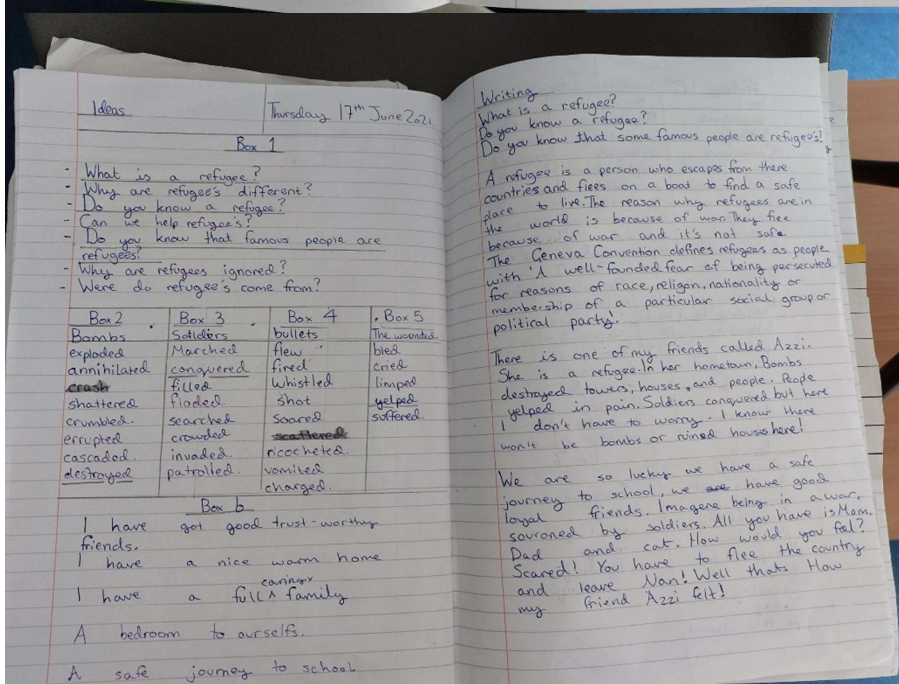 Ideas
Thursday 17th June 2021
Box 1
- What is a refugee?
- Why are refugee's different?
- Do you know a refugee?
- Can we help refugee's?
- Do you know that famous people are
refugees?
- Why are refugees ignored?
- Were do refugee's come from?
Box 2
Bombs
exploded
annihilated
crash
shattered
crumbled.
errupted
cascaded.
destroyed
Box 3
Soldiers
Marched
conquered
filled
floded
searched
crowded
invaded.
patrolled.
Box 4
bullets
flew
fired
whistled
shot
Soared
scattered
ricocheted.
vomited
charged.
Box 5
The wounted
bled
cried
limped
yelped
suffered.
Box 6
I have got good trust-worthy
friends.
I have a nice warm home
I have a full caring family
A bedroom to ourselfs.
A safe journey to school
Writing
What is a refugee?
Do you know a refugee?
Do you know that some famous people are refugee's?
A refugee is a person who escapes from there
countries and flees on a boat to find a safe
place to live. The reason why refugees are in
the world is because of war. They flee
because of war and it's not safe.
The Geneva Convention defines refugees as people
with 'A well-founded fear of being persecuted
for reasons of race, religon, nationality or
membership of a particular social group or
political party'.
There is one of my friends called Azzi.
She is a refugee. In her hometown, Bombs
destroyed towers, houses, and people. People
yelped in pain. Soldiers conquered but here
I don't have to worry. I know there
won't be bombs or ruined houses here!
We are so lucky we have a safe
journey to school, we are have good
loyal friends. Imagene being in a war,
souroned by soldiers. All you have is Mom,
Dad and cat. How would you feel?
Scared! You have to flee the country
and leave Nan! Well thats How
my friend Azzi felt!